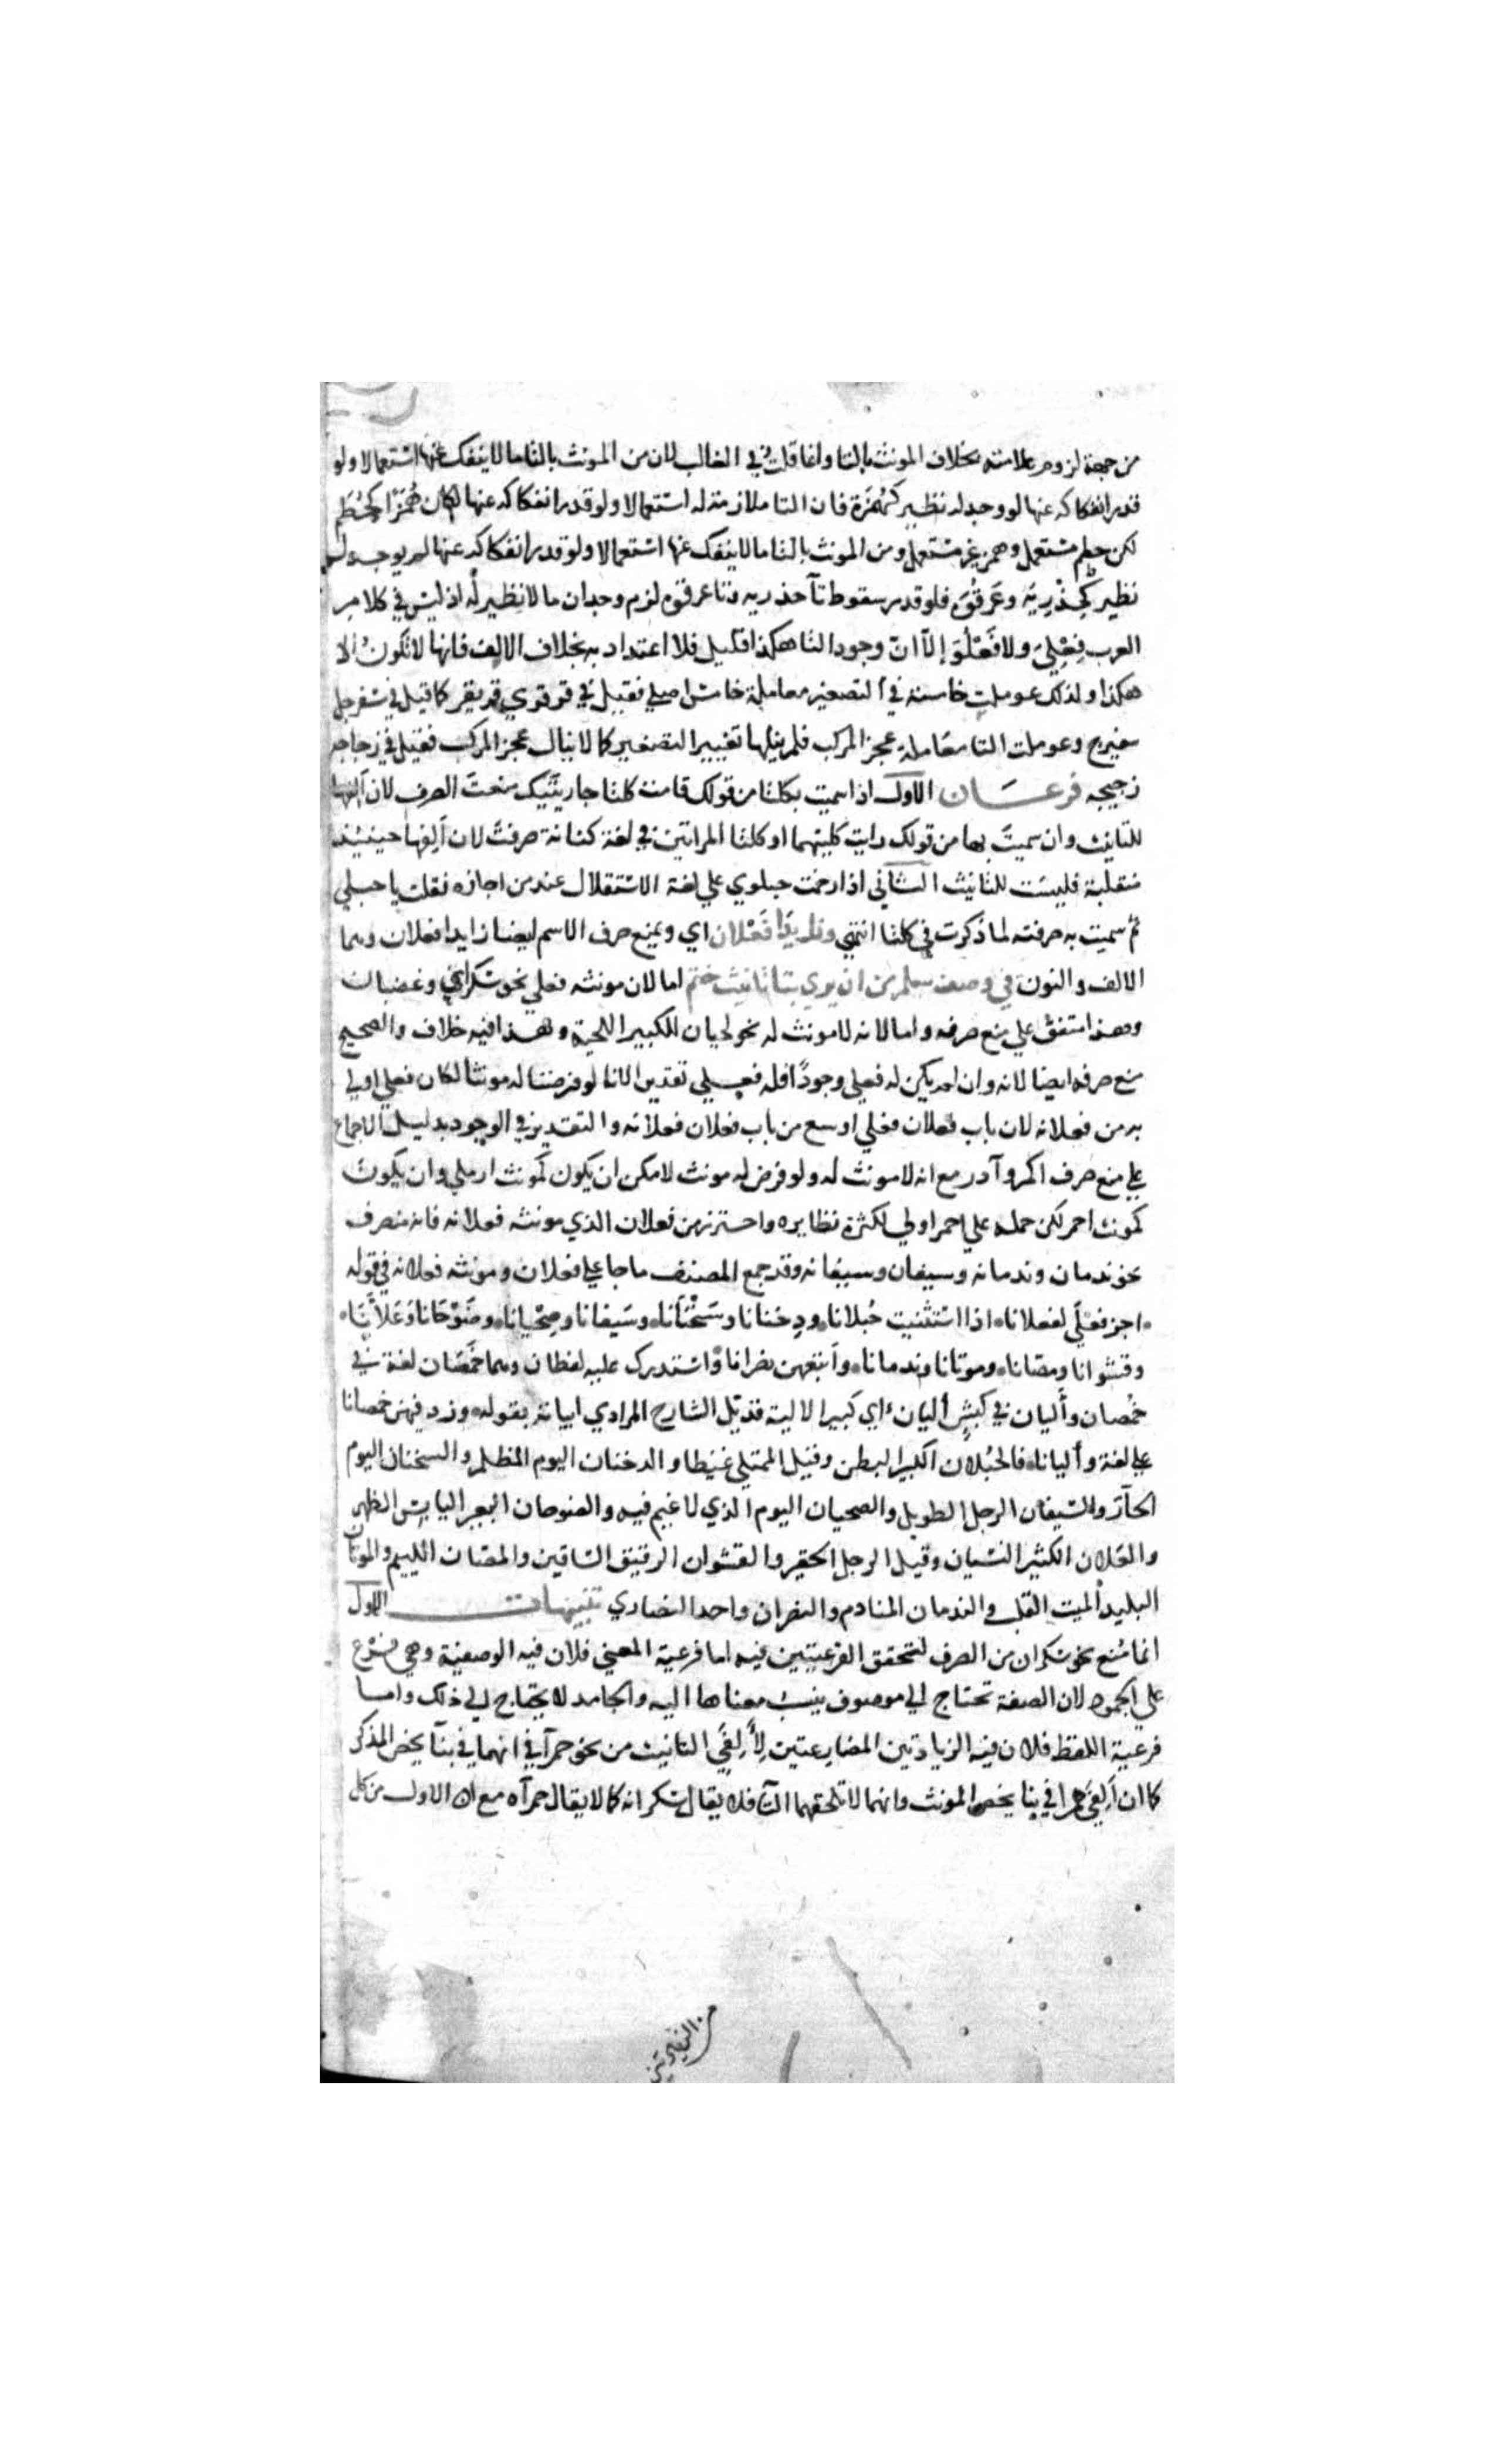 من جهة لزوم علامته بخلاف المونث بالتا وانما قلت في الغالب لان من المونث بالتا ما لا ينفك عنها استعمالا ولو
قدر انفكاكه عنها لو وجد له نظير كهُمَزَة فان التا ملازمة له استعمالا ولو قدر انفكاكه عنها لكان هُمَزًا كحُطَم
لكن حطم مستعمل وهمز غير مستعمل ومن المونث بالتا ما لا ينفك عنها استعمالا ولو قدر انفكاكه عنها لم يوجد له
نظير كحِذْرِيَة وعَرقُوَة فلو قدر سقوط تآ حذرية وتا عرقوة لزم وجدان ما لا نظير له اذ ليس في كلام
العرب فِعْلِيٌ ولا فَعْلُوَ إلّا انّ وجود التا هكذا قليل فلا اعتداد به بخلاف الالف فانها لا تكونُ الا
هكذا ولذلك عوملت خامسة في التصغير معاملة خامس اصلي فقيل في قرقري قريقر كما قيل في سفرجل
سفيرج وعوملت التا معَاملة عجز المركب فلم ينلها تغيير التصغير كما لا ينال عجز المركب فقيل في زجاجه
زجيجه فرعَان الاول اذا سميت بكلتا من قولك قامت كلتا جاريتَيك منعتَ الصرف لان اَلِفها
للتانيث وان سميتَ بها من قولك رايت كلتيهما او كلتا المراتين في لغة كنانة صرفتَ لان اَلِفها حينيذ
منقلبة فليسَت للتانيث الثاني اذا رخمت حبلوي علي لغة الاستقلال عند من اجازه فقلت يا حبلي
ثم سميت به صرفته لما ذكرت في كلتا انتهي وزايدَا فَعْلان اي ويمنع صرف الاسم ايضا زايدا فعلان وهما
الالف والنون في وصف سلم من ان يري بتا تانيث ختم اما لان مونثه فعلي نحو سكران وغضبان
وهذا متفق علي منع صرفه واما لانه لا مونث له نحو لحيان للكبير اللحية وهذا فيه خلاف والصحيح
منع صرفه ايضا لانه وان لم يكن له فعلي وجودًا فله فعلي تقديرا لانا لو فرضنا له مونثا لكان فعلي اولي
به من فعلانه لان باب فعلان فعلي اوسع من باب فعلان فعلانه والتقدير في الوجود بدليل الاجماع
علي منع صرف اكمر وآدر مع انه لا مونث له ولو فرض له مونث لامكن ان يكون كمونث ارمل وان يكونَ
كمونث احمر لكن حمله علي احمر اولي لكثرة نظايره واحترز من فعلان الذي مونثه فعلانه فانه منصرف
نحو ندمان وندمانه وسيفان وسيفانه وقد جمع المصنف ما جا علي فعلان ومونثه فعلانه في قوله
اجز فعْلَي لفعلانا اذا استثنيت حُبلانا ودخنانا وسَخْنَانا وسَيفانا وصحْيانا وصَوْحَانا وعَلاَّنَا
وقشوانا ومصّانا وموتانا وندمانا واَتبعهن نصرانا واستدرك عليه لفظان وهما خمَصَان لغة في
خُمصان واَليان في كبشٍ اَليان اي كبير الالية فذيّل الشارح المرادي ابياته بقوله وزد فيهن خمصانا
علي لغة وأليانا فالحبْلان الكبير البطن وقيل الممتلي غيظا والدخنان اليوم المظلم والسخنان اليوم
الحآرّ والسّيفان الرجل الطويل والصحيان اليوم الذي لا غيم فيه والصوحان البعير اليابس الظهر
والعَلان الكثير النسْيان وقيل الرجل الحقير والقشوان الرقيق السّاقين والمصّان اللييم والموتان
البليد الميت القلب والندمان المنادم والنصران واحد النصاري تنبيهات الاول
انما مُنع نحو سَكران من الصرف لتحقق الفرعيتين فيه اما فرعية المعني فلان فيه الوصفية وهي فرع
علي الجمود لان الصفة تحتاج الي موصوف ينسَبُ معناها اليه والجامد لا يحتاج الي ذلك واما
فرعية اللفظ فلان فيه الزيادتين المضارعتين لِأَلِفَيِ التانيث من نحو حمرآ في انهما في بنآ يخص المذكر
كما ان اَلِفي حمرا في بنا يخص المونث وانهما لا تلحقهما التآ فلا يقال سَكرانه كما لا يقال حمرآه مع ان الاول من كل